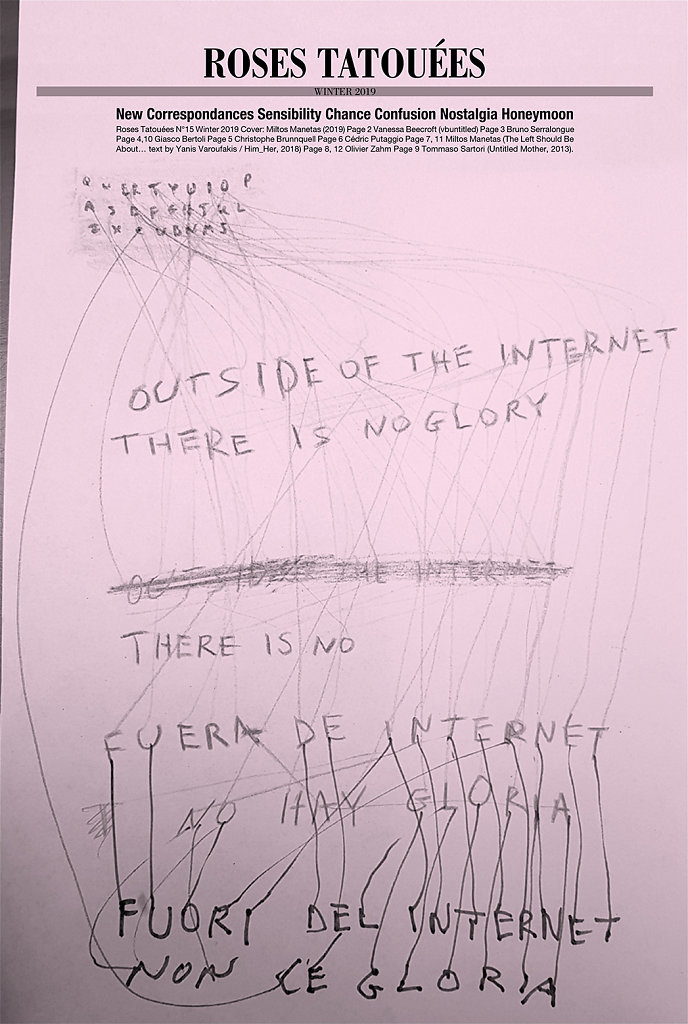 ROSES TATOUÉES
WINTER 2019
New Correspondances Sensibility Chance Confusion Nostalgia Honeymoon
Roses Tatouées N°15 Winter 2019 Cover: Miltos Manetas (2019) Page 2 Vanessa Beecroft (vbuntitled) Page 3 Bruno Serralongue
Page 4,10 Giasco Bertoli Page 5 Christophe Brunnquell Page 6 Cédric Putaggio Page 7, 11 Miltos Manetas (The Left Should Be
About… text by Yanis Varoufakis / Him_Her, 2018) Page 8, 12 Olivier Zahm Page 9 Tommaso Sartori (Untitled Mother, 2013).
Q W E R T Y U I O P
A S D F G H J K L
OUTSIDE OF THE INTERNET
THERE IS NO GLORY
OUTSIDE THE INTERN
THERE IS NO
FUERA DE INTERNET
NO HAY GLORIA
FUORI DEL INTERNET
NON CE GLORIA